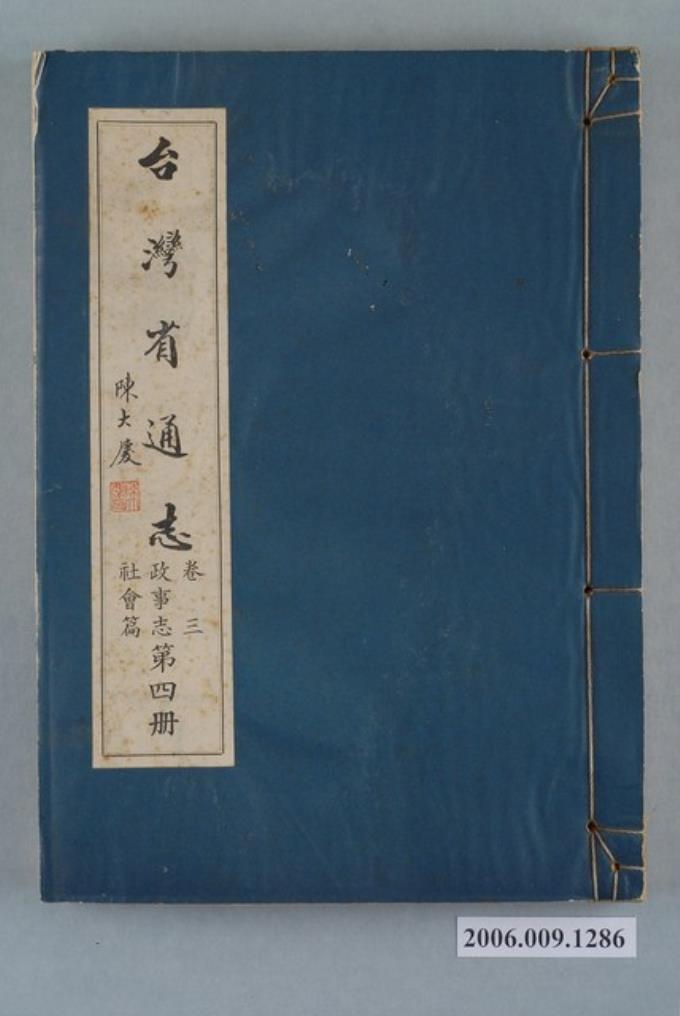 台灣省通志
卷三
政事志
社會篇
第四册
陳大慶
2006.009.1286